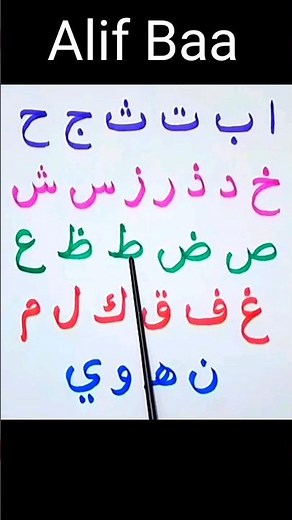 Alif Baa
ا ب ت ث ج ح
خ د ذ ر ز س ش
ص ض ط ظ ع
غ ف ق ك ل م
ن ه و ي